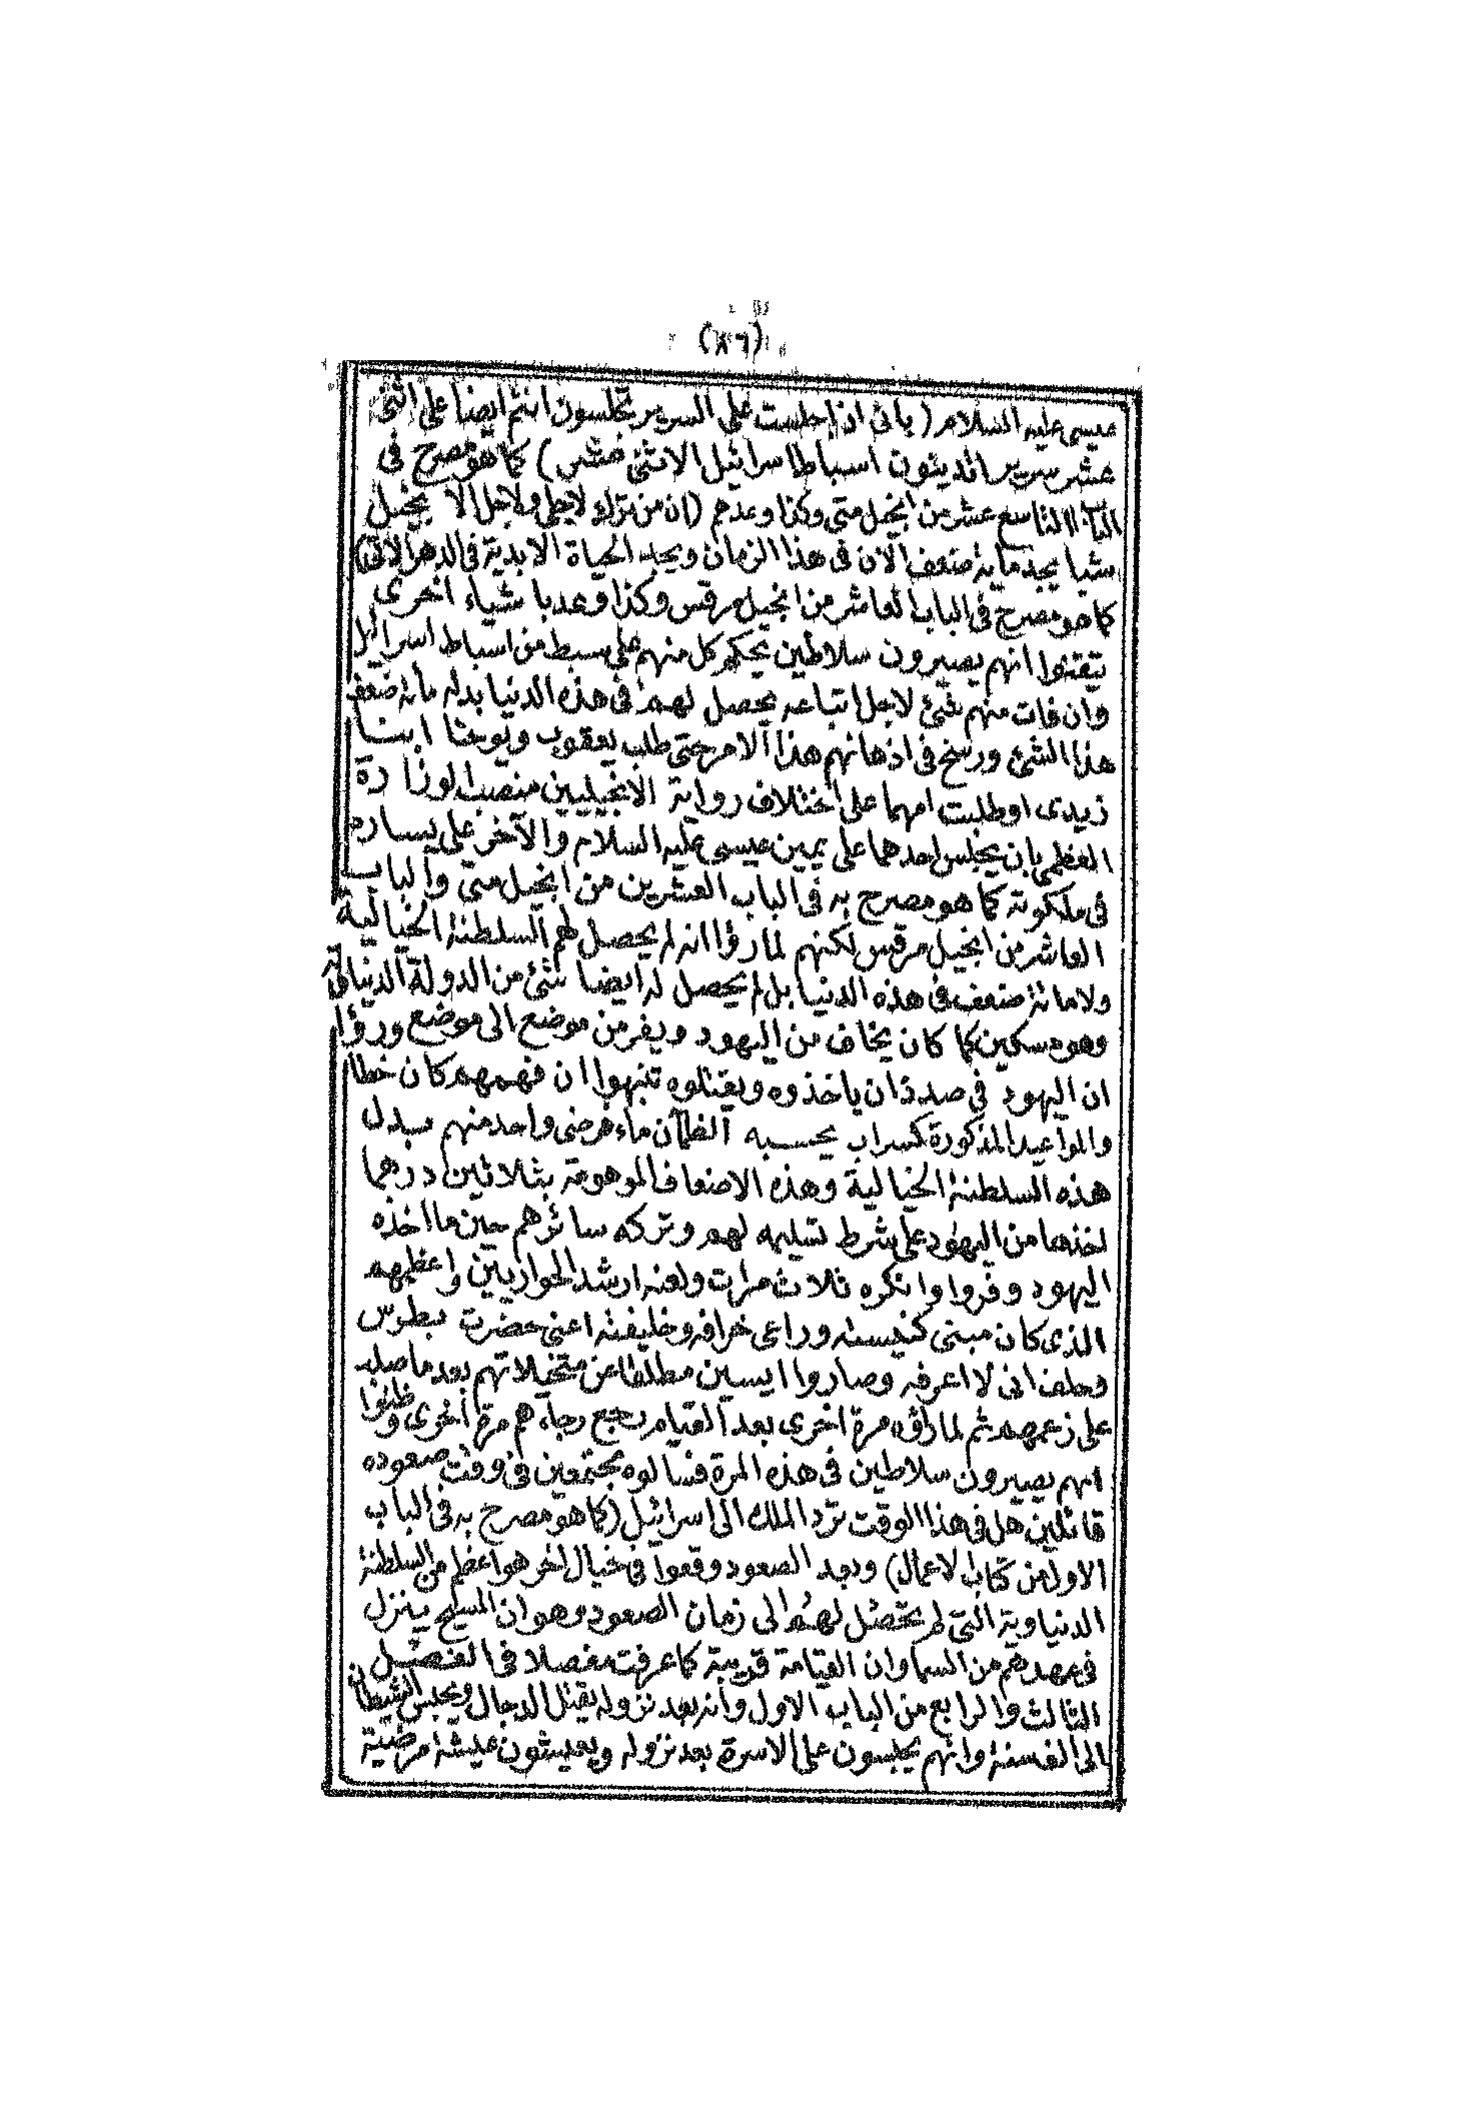 (٨٦)
عيسى عليه السلام (بانى اذا جلست على السرير تجلسون انتم ايضا على اثنى
عشر سريرا تدينون اسباط اسرائيل الاثنى عشر) كما هو مصرح فى
الباب التاسع عشر من انجيل متى وكذا وعدهم (ان من ترك لاجلى ولاجل الانجيل
شيا يجد مأية ضعف الآن فى هذا الزمان ويجد الحياة الابدية فى الدهر الاتى)
كما هو مصرح فى الباب العاشر من انجيل مرقس وكذا وعد باشياء اخرى
تيقنوا انهم يصيرون سلاطين يحكم كل منهم على سبط من اسباط اسرائيل
وان فات منهم شئ لاجل اتباعه يحصل لهم فى هذه الدنيا بدله مأية ضعف
هذا الشئ ورسخ فى اذهانهم هذا الامر حتى طلب يعقوب ويوحنا ابنا
زيدى او طلبت امهما على اختلاف رواية الانجيليين منصب الوزارة
العظمى بان يجلس احدهما على يمين عيسى عليه السلام والآخر على يساره
فى ملكوته كما هو مصرح به فى الباب العشرين من انجيل متى والباب
العاشر من انجيل مرقس لكنهم لما رؤا انه لم يحصل لهم السلطنة الخيالية
ولا مائة ضعف فى هذه الدنيا بل لم يحصل له ايضا شئ من الدولة الدنياوية
وهو مسكين كما كان يخاف من اليهود ويفر من موضع الى موضع ورؤا
ان اليهود فى صدد ان ياخذوه ويقتلوه تنبهوا ان فهمهم كان خطا
والمواعيد المذكورة كسراب يحسبه الظمآن ماء فرضى واحد منهم ببدل
هذه السلطنة الخيالية وهذه الاضعاف الموهومة بثلاثين درهما
اخذها من اليهود على شرط تسليمه لهم وتركه سائرهم حين ما اخذه
اليهود وفروا وانكره ثلاث مرات ولعنه ارشد الحواريين واعظمهم
الذى كان مبنى كنيسته وراعى خرافه وخليفته اعنى حضرت بطرس
وحلف انى لا اعرفه وصاروا ايسين مطلقا عن متخيلاتهم بعد ما صلب
على زعمهم ثم لما رأوه مرة اخرى بعد القيام رجع رجاءهم مرة اخرى وظنوا
انهم يصيرون سلاطين فى هذه المرة فسالوه مجتمعين فى وقت صعوده
قائلين هل فى هذا الوقت ترد الملك الى اسرائيل (كما هو مصرح به فى الباب
الاول من كتاب الاعمال) وبعد الصعود وقعوا فى خيال اخر هو اعظم من السلطنة
الدنياوية التى لم تحصل لهم الى زمان الصعود وهو ان المسيح ينزل
فى عهدهم من السما وان القيامة قريبة كما عرفت مفصلا فى الفصل
الثالث والرابع من الباب الاول وانه بعد نزوله يقتل الدجال ويحبس الشيطان
الى الف سنة وانهم يجلسون على الاسرة بعد نزوله ويعيشون عيشة مرضية